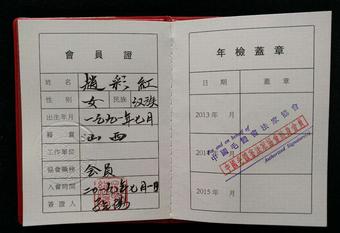 會員證
姓名 趙彩紅
性別 女 民族 汉族
出生年月 一九九一年七月
籍貫 山西
工作單位
協會職務 会员
入會時間 二〇一九年七月一日
簽證人
年檢蓋章
日期 蓋章
2013年 月
201 年 月
2015年 月
For and on behalf of
中國毛體書法家協會
Authorized Signature(s)